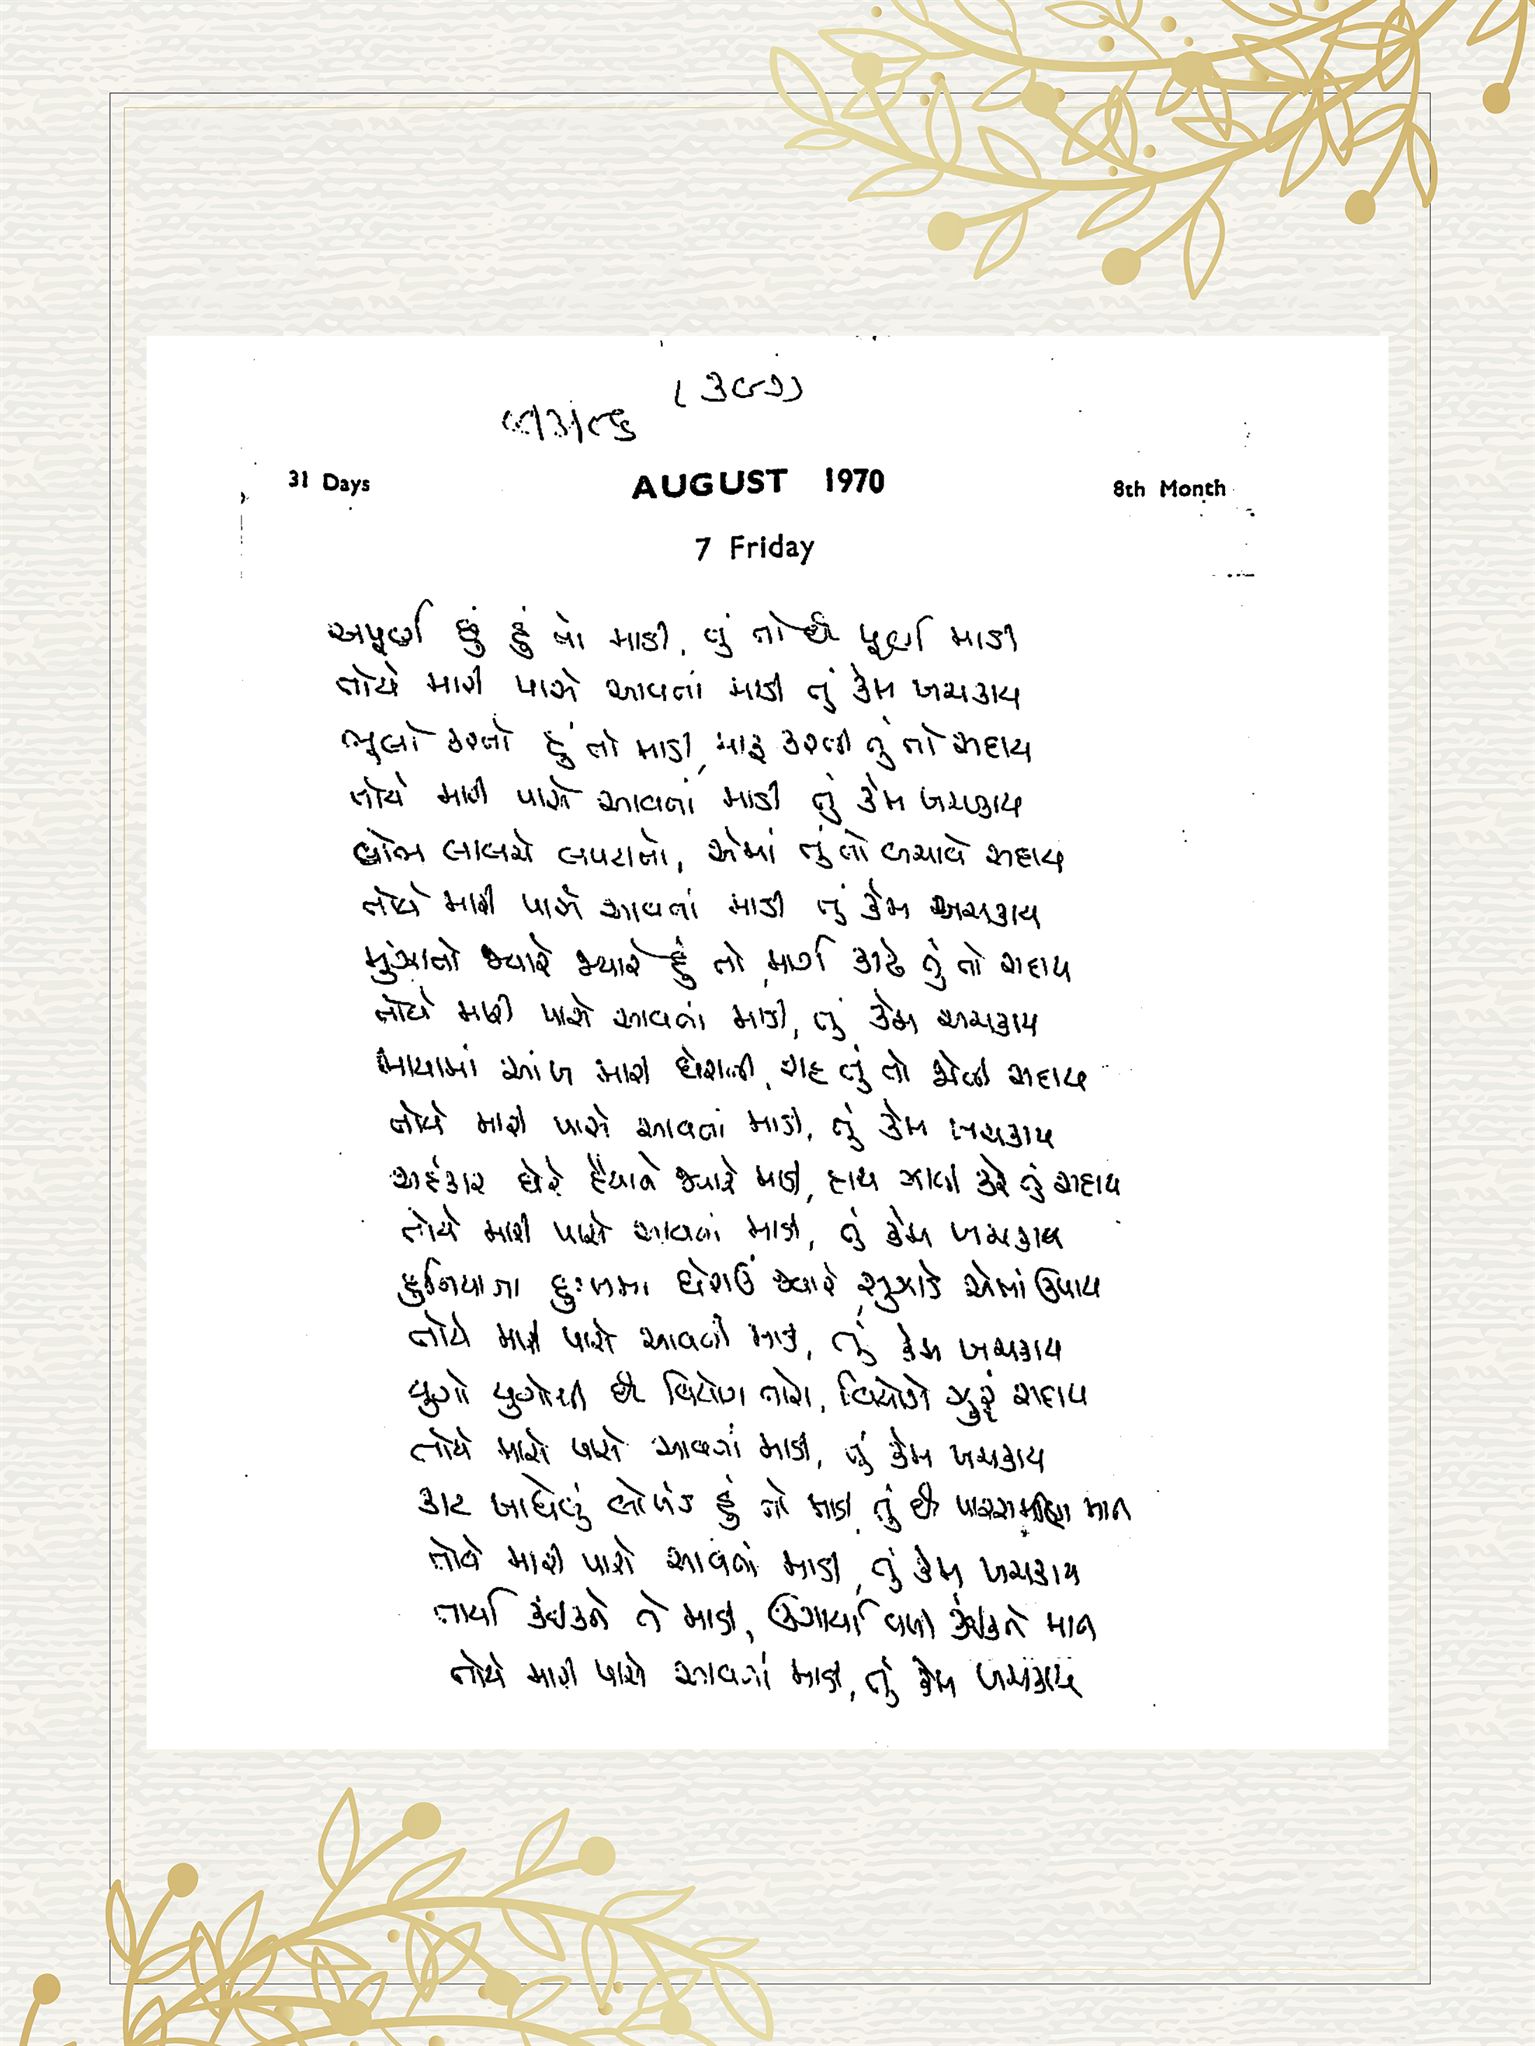 (૩૯૭)
૯/૩/૮૬
31 Days AUGUST 1970 8th Month
7 Friday
અપૂર્ણ છું હું તો માડી, તું તો છે પૂર્ણ માડી
તોયે મારી પાસે આવતાં માડી તું કેમ ખચકાય
ભૂલો કરતો હું તો માડી, માફ કરતી તું તો સદાય
તોયે મારી પાસે આવતાં માડી તું કેમ ખચકાય
લોભ લાલચે લપટાતો, એમાં તું તો બચાવે સદાય
તોયે મારી પાસે આવતાં માડી તું કેમ ખચકાય
મુંઝાતો જ્યારે જ્યારે હું તો, માર્ગ કાઢે તું તો સદાય
તોયે મારી પાસે આવતાં માડી, તું કેમ ખચકાય
માયામાં આંખ મારી ઘેરાતી, રાહ તું તો જોતી સદાય
તોયે મારી પાસે આવતાં માડી, તું કેમ ખચકાય
અહંકાર ઘેરે હૈયાને જ્યારે માડી, હાથ ઝાલી કરે તું સહાય
તોયે મારી પાસે આવતાં માડી, તું કેમ ખચકાય
દુનિયાના દુઃખમાં ઘેરાઉં જ્યારે, સુઝાડે એમાં ઉપાય
તોયે મારી પાસે આવતાં માડી, તું કેમ ખચકાય
યુગો યુગોથી છે વિયોગ તારો, વિયોગે ઝુરું સદાય
તોયે મારી પાસે આવતાં માડી, તું કેમ ખચકાય
કાટ ખાધેલું લોખંડ હું તો માડી, તું છે પારસમણિ માત
તોયે મારી પાસે આવતાં માડી, તું કેમ ખચકાય
તાર્યા કંઈકને તેં માડી, ઉગાર્યા વળી કંઈકને માત
તોયે મારી પાસે આવતાં માડી, તું કેમ ખચકાય